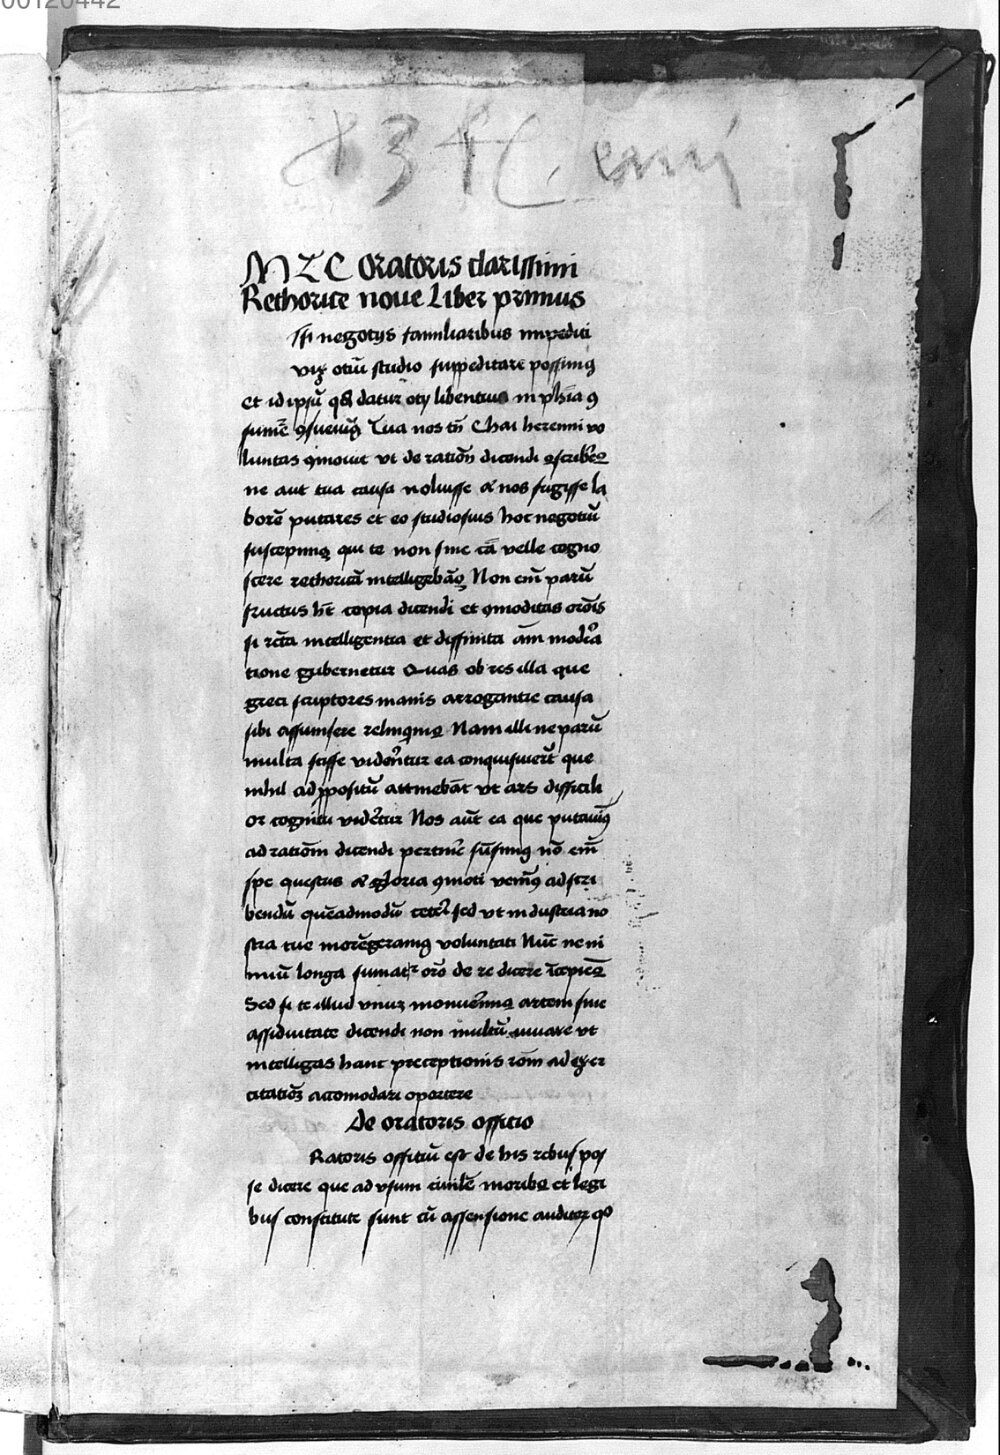 00120442
M T C Oratoris clarissimi
Rethorice noue Liber primus
Tsi negotijs familiaribus impediti
vix otiū studio suppeditare possimꝰ
et id ipsū qd datur otij libentius in phīa ꝯ
sumē ꝯsueuimꝰ Tua nos tn̄ Chai herenni vo
luntas ꝯmouit vt de ratiōn dicendi ꝯscriberē
ne aut tua causa noluisse a nos fugisse la
borē putares et eo studiosius hoc negotiū
suscepimꝰ qui te non sine cā velle cogno
scere rethoricā intelligebāꝰ Non eni᷒ parū
fructus ht̄ copia dicendi et ꝯmoditas orōis
si rc̄ta intelligentia et diffinita aīm modēa
tione gubernetur Quas ob res illa que
greci scriptores inanis arrogantie causa
sibi assumsere relinqimꝰ Nam illi ne parū
multa scisse viderētur ea conquisiuerūt que
nihil ad ꝓpositū attinebāt vt ars difficili
or cognitu viderētur Nos aūt ea que putauimꝰ
ad ratiōm dicendi pertinē sūsimꝰ nō enī
spe questus a gloria ꝯmoti venimꝰ ad scri
bendū quēadmodū ceteri sed vt industria no
stra tue morēgeramꝰ voluntati Nūc ne ni
miū longa sumatr orō de re dicere īcipiēꝰ
Sed si te illud vnuꝫ monuerimꝰ artem sine
assiduitate dicendi non multū iuuare vt
intelligas hanc preceptionis rōm ad exer
citatiōꝫ acomodari oportere
De oratoris offitio
Ratoris offitiū est de his rebus pos
se dicere que ad vsum ciuilē moribꝰ et legi
bus constitute sunt cū assensione auditoꝝ qo